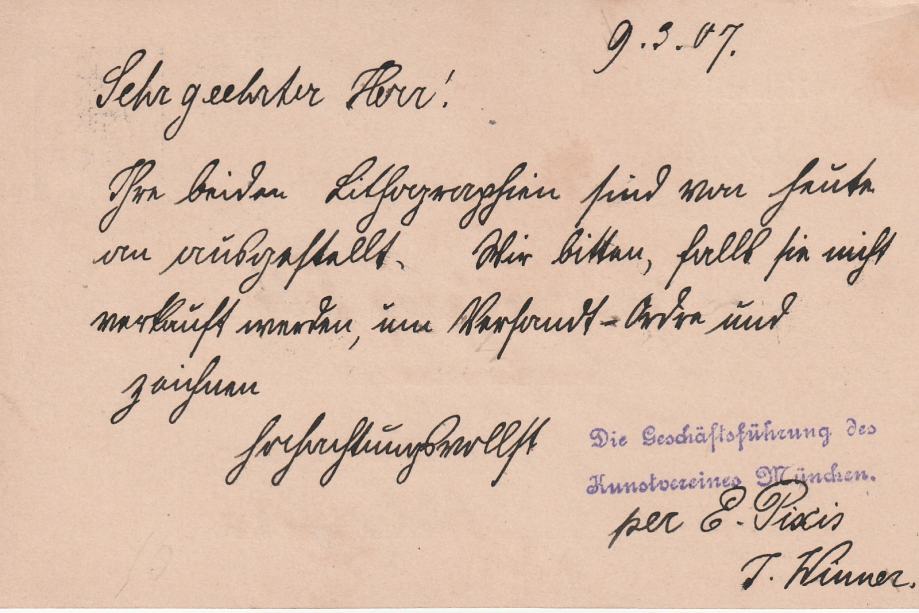 9.3.07.
Sehr geehrter Herr!
Ihre beiden Lithographien sind von heute
an ausgestellt. Wir bitten, falls sie nicht
verkauft werden, um Versandt-Ordre und
zeichnen
hochachtungsvollst
Die Geschäftsführung des
Kunstvereines München.
per E. Pixis
J. Winner.